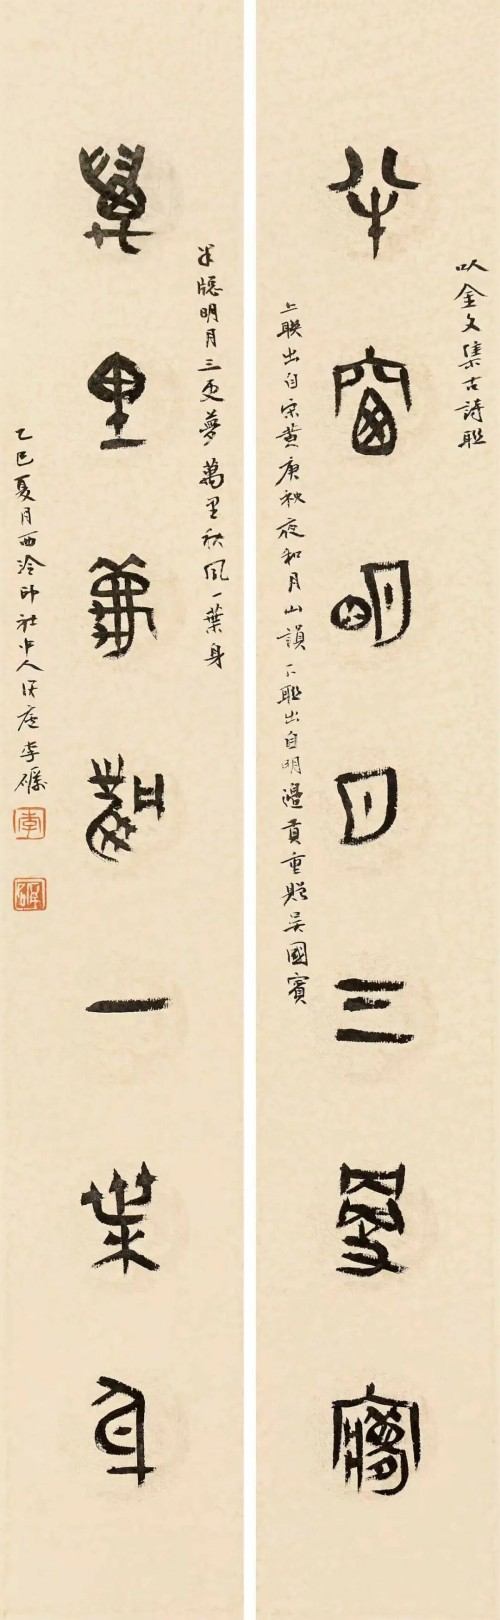 以金文集古詩聯
半窗明月三更夢
上聯出自宋黄庚秋夜和月山韻下聯出自明邊貢重贈吴國賓
半牕明月三更夢萬里秋風一葉身
萬里秋風一葉身
乙巳夏月西泠印社中人李礪
李